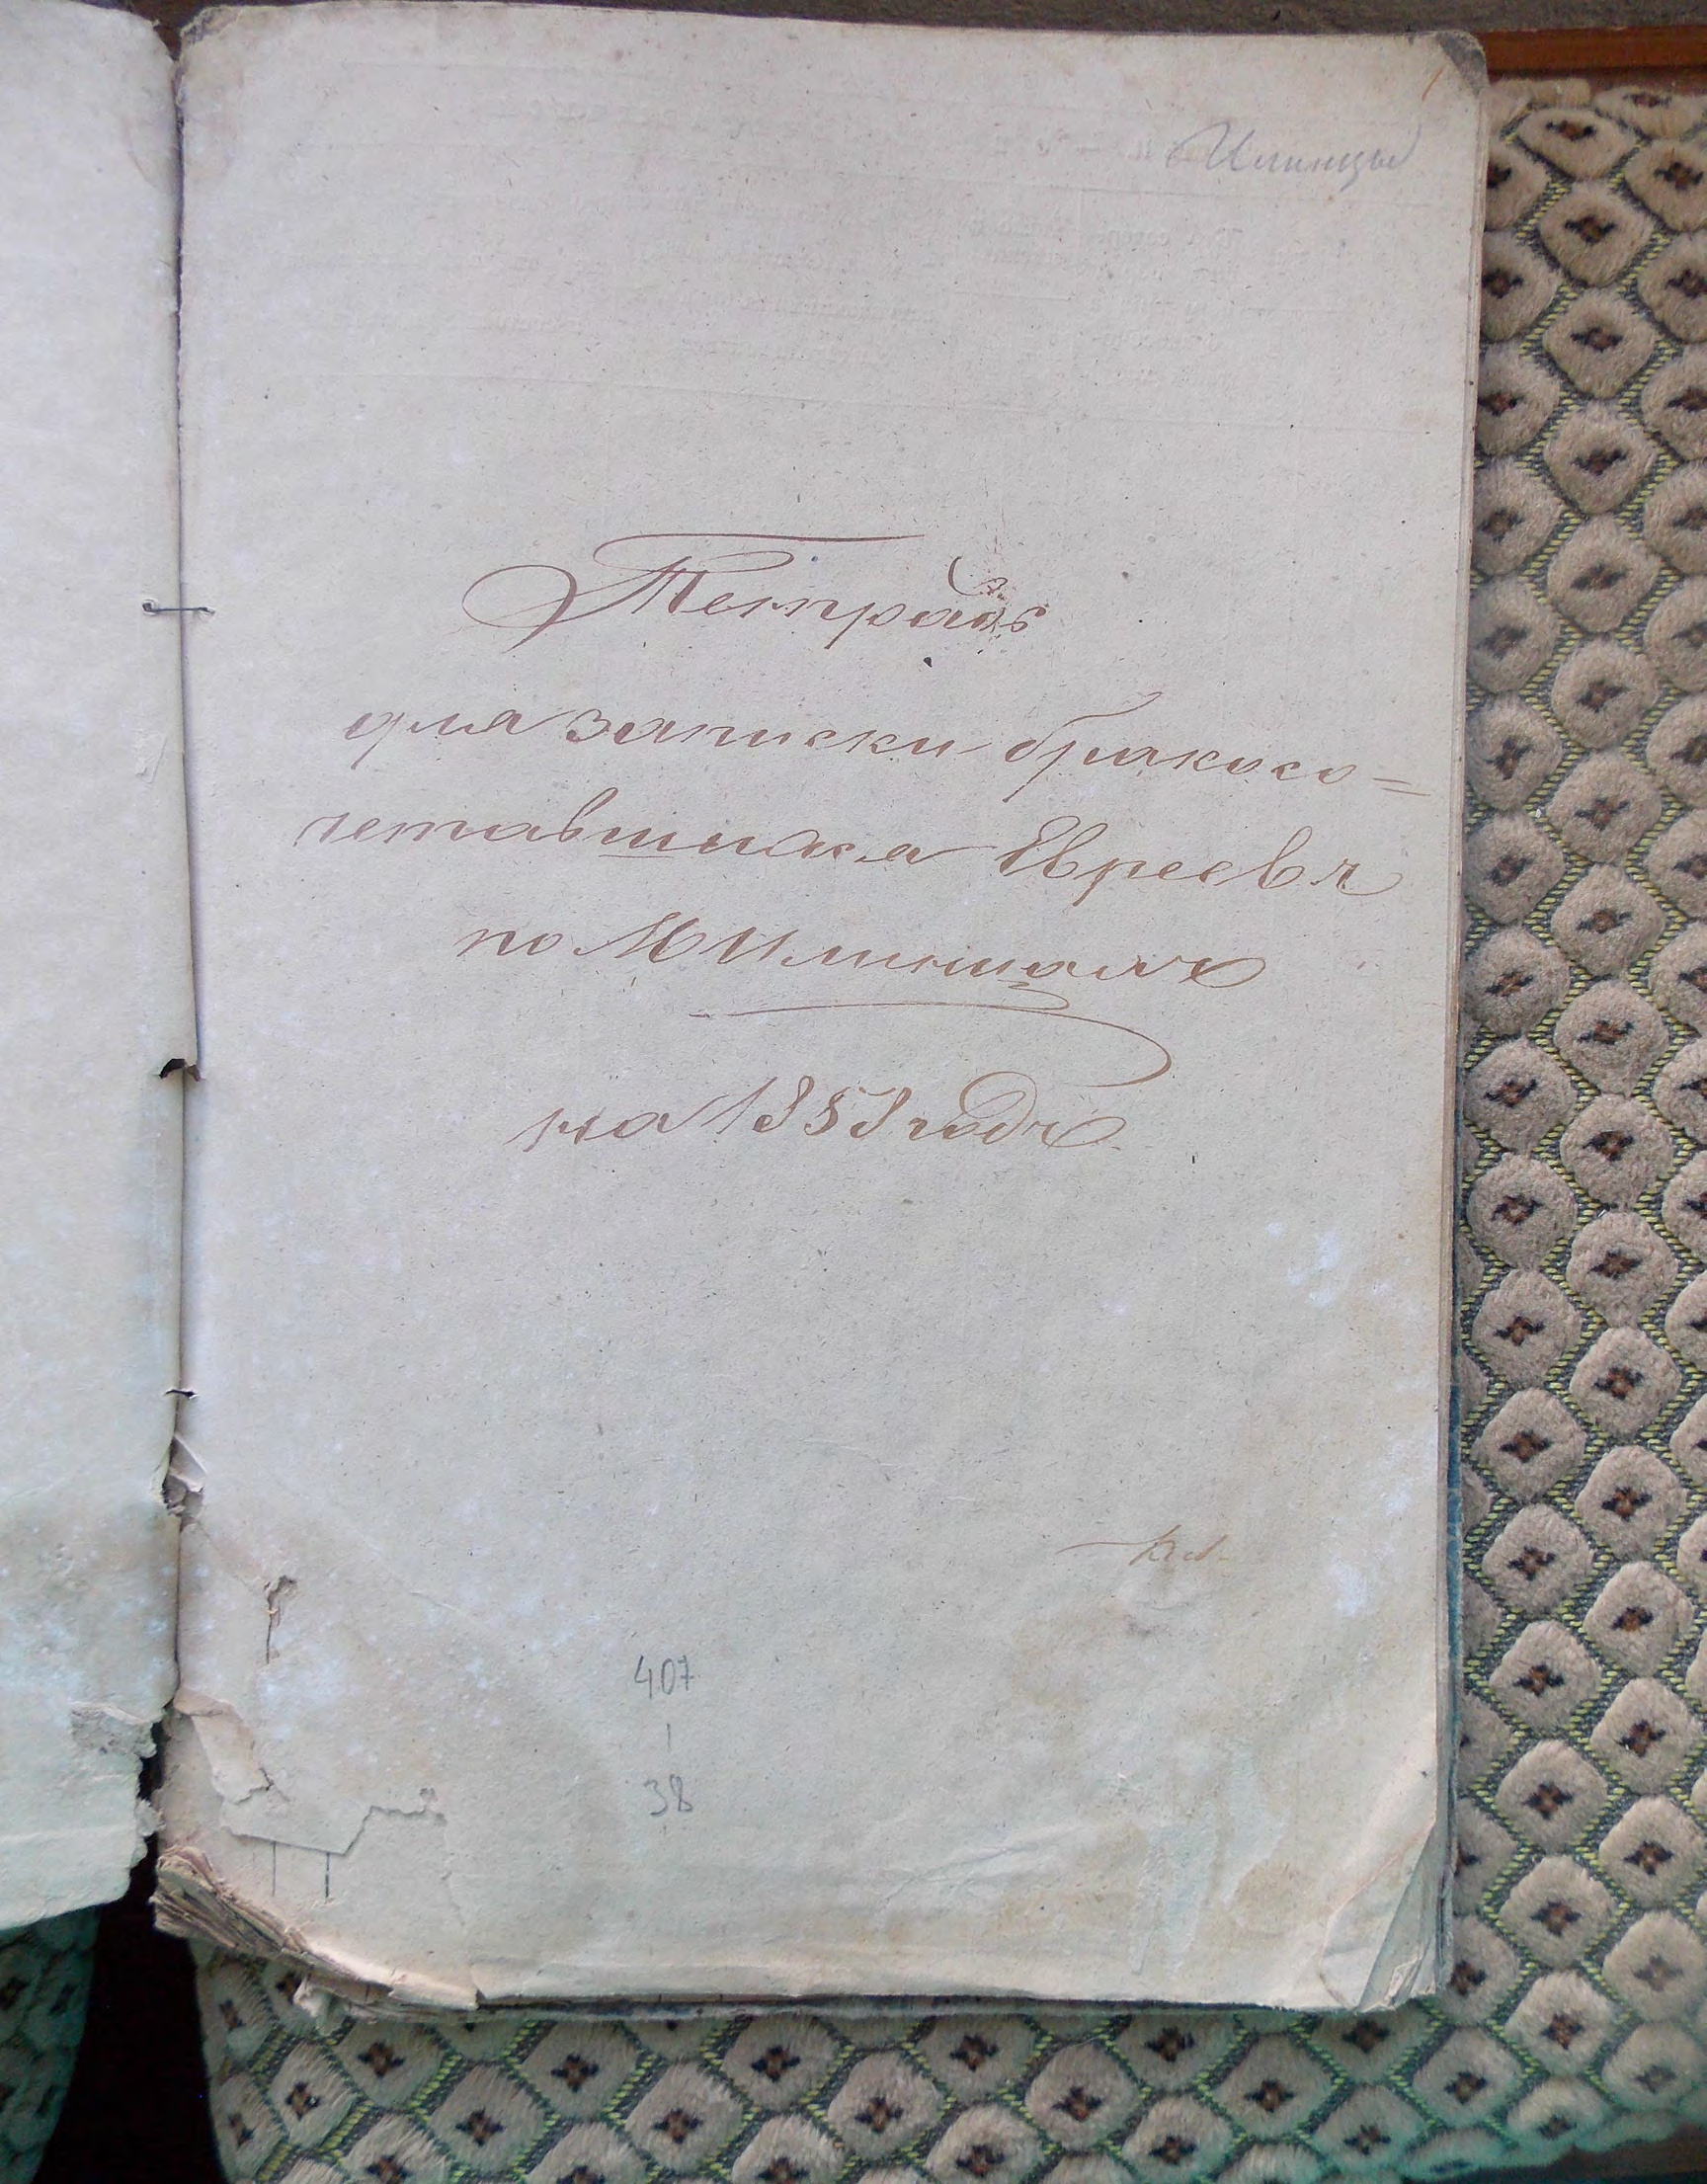 1
Илинцы
Тетрадь
для записки бракосо=
четавшихся Евреевъ
по М Илинцамъ
на 1858 годъ
407
1
38